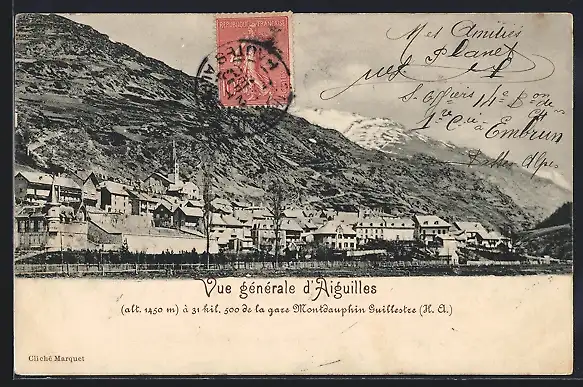 REPUBLIQUE FRANÇAISE
Mes Amitiés
Planel
S. Officiers 14e Bon de
1e Cie à Embrun
Alpes
Vue générale d'Aiguilles
(alt. 1450 m) à 31 kil. 500 de la gare Montdauphin Guillestre (H. A.)
Cliché Marquet